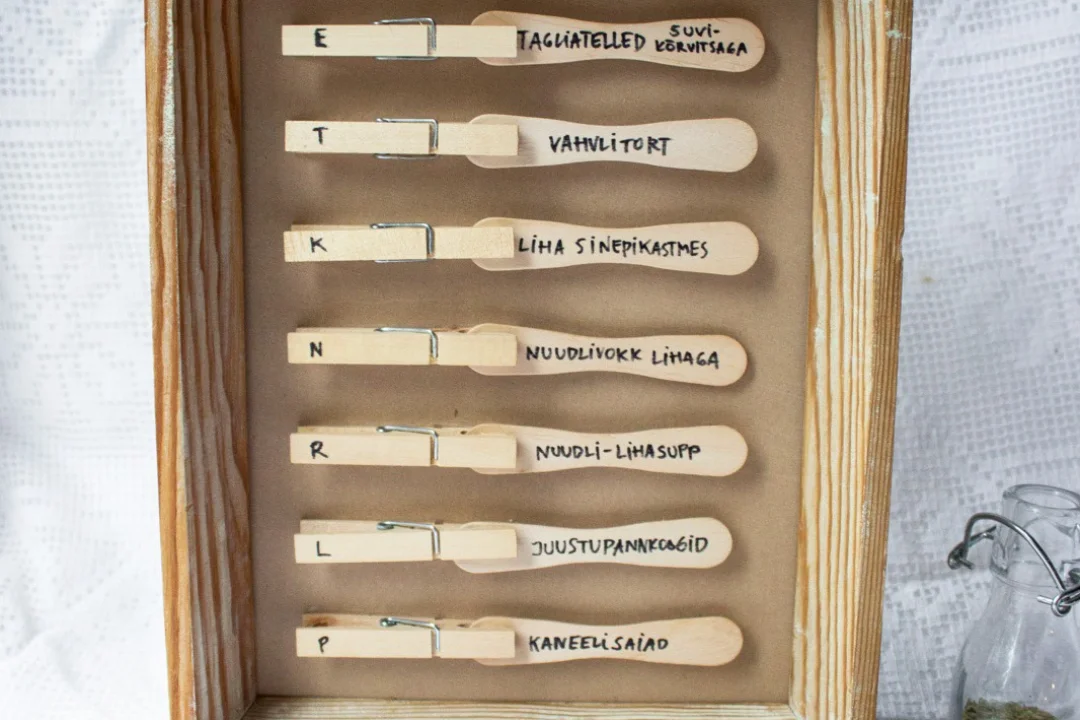 E TAGLIATELLED SUVI-
KÕRVITSAGA
T VAHVLITORT
K LIHA SINEPIKASTMES
N NUUDLIVOKK LIHAGA
R NUUDLI-LIHASUPP
L JUUSTUPANNKOOGID
P KANEELISAIAD